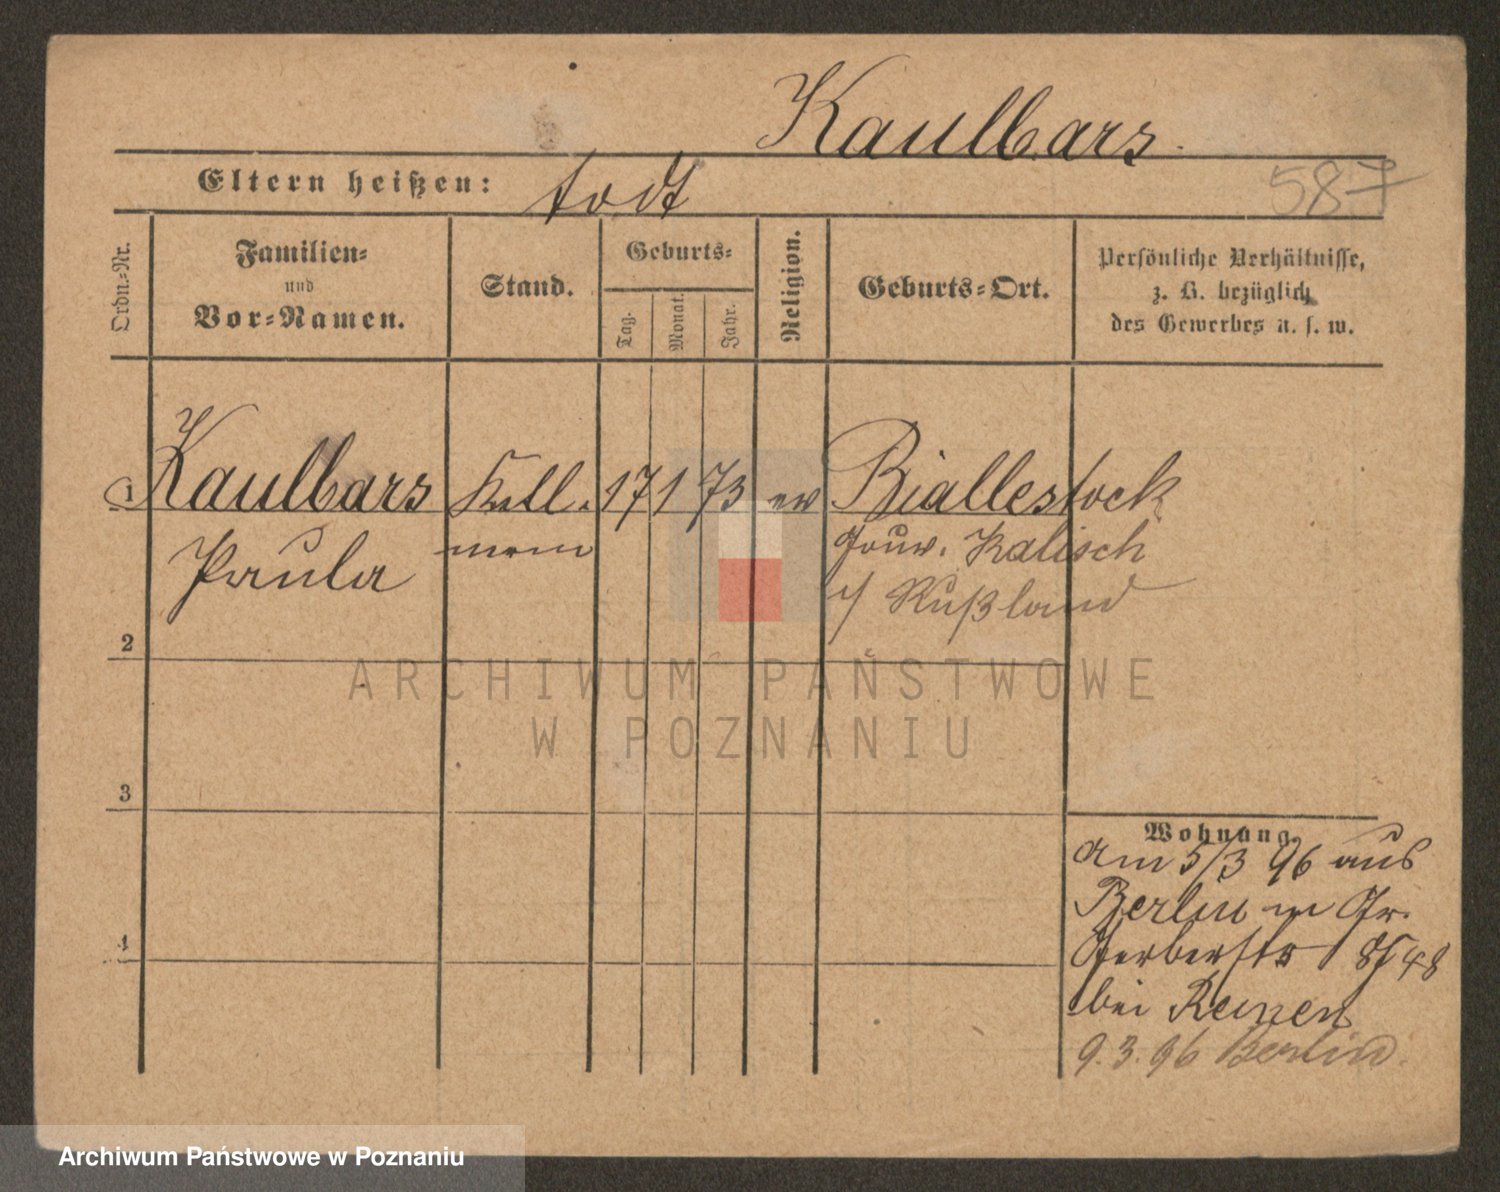 Kaulbars.
Eltern heißen: todt
587
Ordn.-Nr.
Familien-
und
Vor-Namen.
Stand.
Geburts-
Tag.
Monat.
Jahr.
Religion.
Geburts-Ort.
Persönliche Verhältnisse,
z. B. bezüglich
des Gewerbes u. s. w.
1 Kaulbars Kell. 17 1 73 ev Biallestock
Paula Gouv. Kalisch
Rußland
2
ARCHIWUM PAŃSTWOWE
W POZNANIU
3
4
Wohnung
am 5/3 96 aus
Berlin Gr.
Gerberstr 48
bei
9.3.96 Berlin.
Archiwum Państwowe w Poznaniu